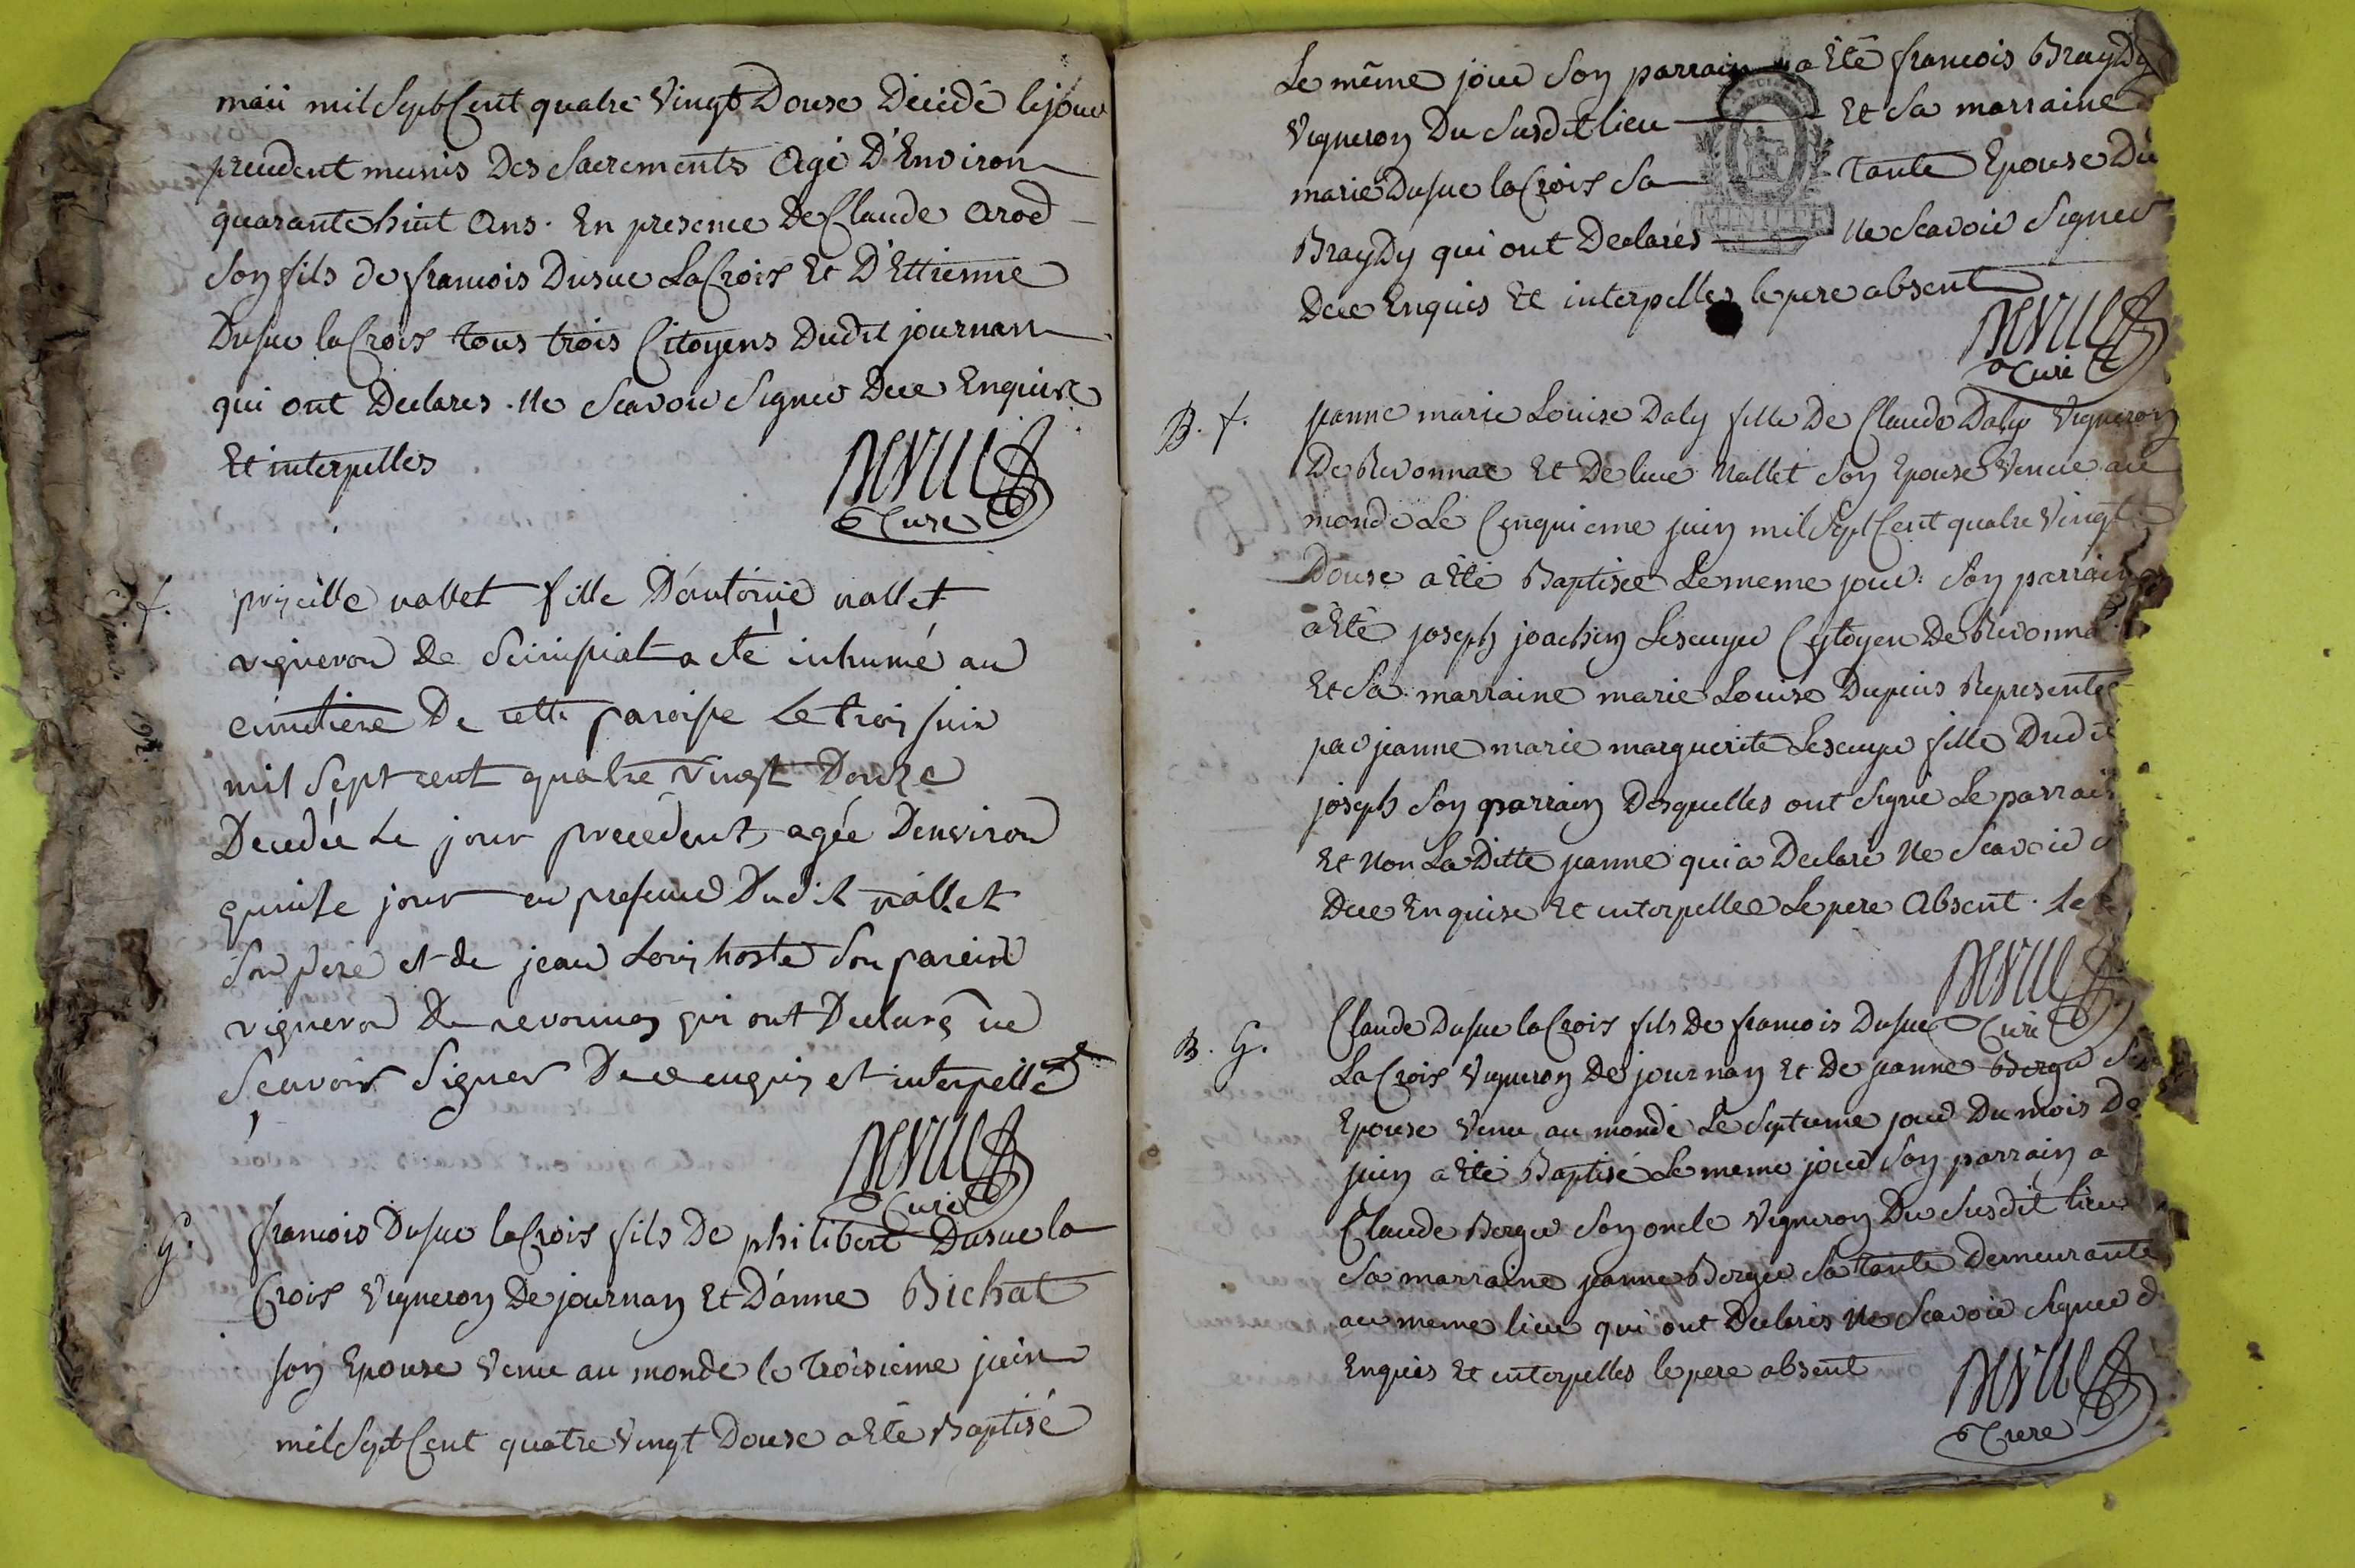 maii mil Sept Cent quatre vingt Douse Décédé le jour
precedent munis Des Sacrements Agé D'Environ
quarante huit Ans. En presence De Claude Arod
Son fils de francois Dusuc LaCroix Et D'Ettienne
Dusuc laCroix tous trois Citoyens Dudit journan
qui ont Declares. Ne Scavoir Signer Dee Enquise
Et interpelles
Curé
f.
nallet fille D'antoine nallet
vigneron de a eté inhumé au
cimetiere De cette paroisse Le trois juin
mil Sept cent quatre vingt Douze
Decedée Le jour precedent agée Denviron
quinze jour en presence Dudit nallet
Son pere et de jean Louis hoste Son parein
vigneron De revonnas qui ont Declarés ne
Scavoir Signer De ce enquis et interpellé
Curé
G.
francois Dusuc laCroix fils De philibert Dusuc la
Croix Vigneron De journan Et D'anne Bichat
son Epouse Venu au monde le troisieme juin
mil Sept Cent quatre Vingt Douse a Eté Baptisé
Le même jour Son parrain a Eté francois Braydy
Vigneron Du Susdit lieu Et Sa marraine
marie Dusuc laCroix Sa Tante Epouse Du
Braydy qui ont Declarés Ne Scavoir Signer
Dee Enquis Et interpelles le pere absent
Curé
B. f.
jeanne marie Louise Daly fille De Claude Daly Vigneron
De Revonnas Et De Nallet Son Epouse Venue au
monde Le Cinquieme juin mil Sept Cent quatre Vingt
Douse a Eté Baptisée Le meme jour. Son parrain
a Eté joseph joachim Lescuyer Citoyen De Revonna
Et Sa marraine marie Louise Dupuis Representée
par jeanne marie marguerite Lescuyer fille Dudi
joseph Son parrain Desquelles ont Signé Le parrain
Et Non La Ditte jeanne qui a Declaré Ne Scavoir
Dee Enquise Et interpellee Le pere Absent.
Curé
B. G.
Claude Dusuc laCroix fils De francois Dusuc
LaCroix Vigneron De journan Et De jeanne Berger
Epouse Venu au monde Le Septieme jour Du mois De
juin a Eté Baptisé Le meme jour Son parrain a
Claude Berger Son oncle Vigneron Du Susdit lieu
Sa marraine jeanne Berger Sa tante Demeurante
au meme lieu qui ont Declarés Ne Scavoir Signer
Enquis Et interpelles le pere absent
Curé